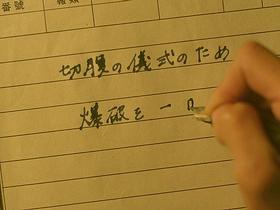 番號
切腹の儀式のため
爆破を一